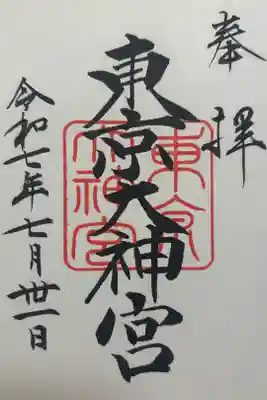 奉拝
東京大神宮
東京大神宮
令和七年七月丗一日